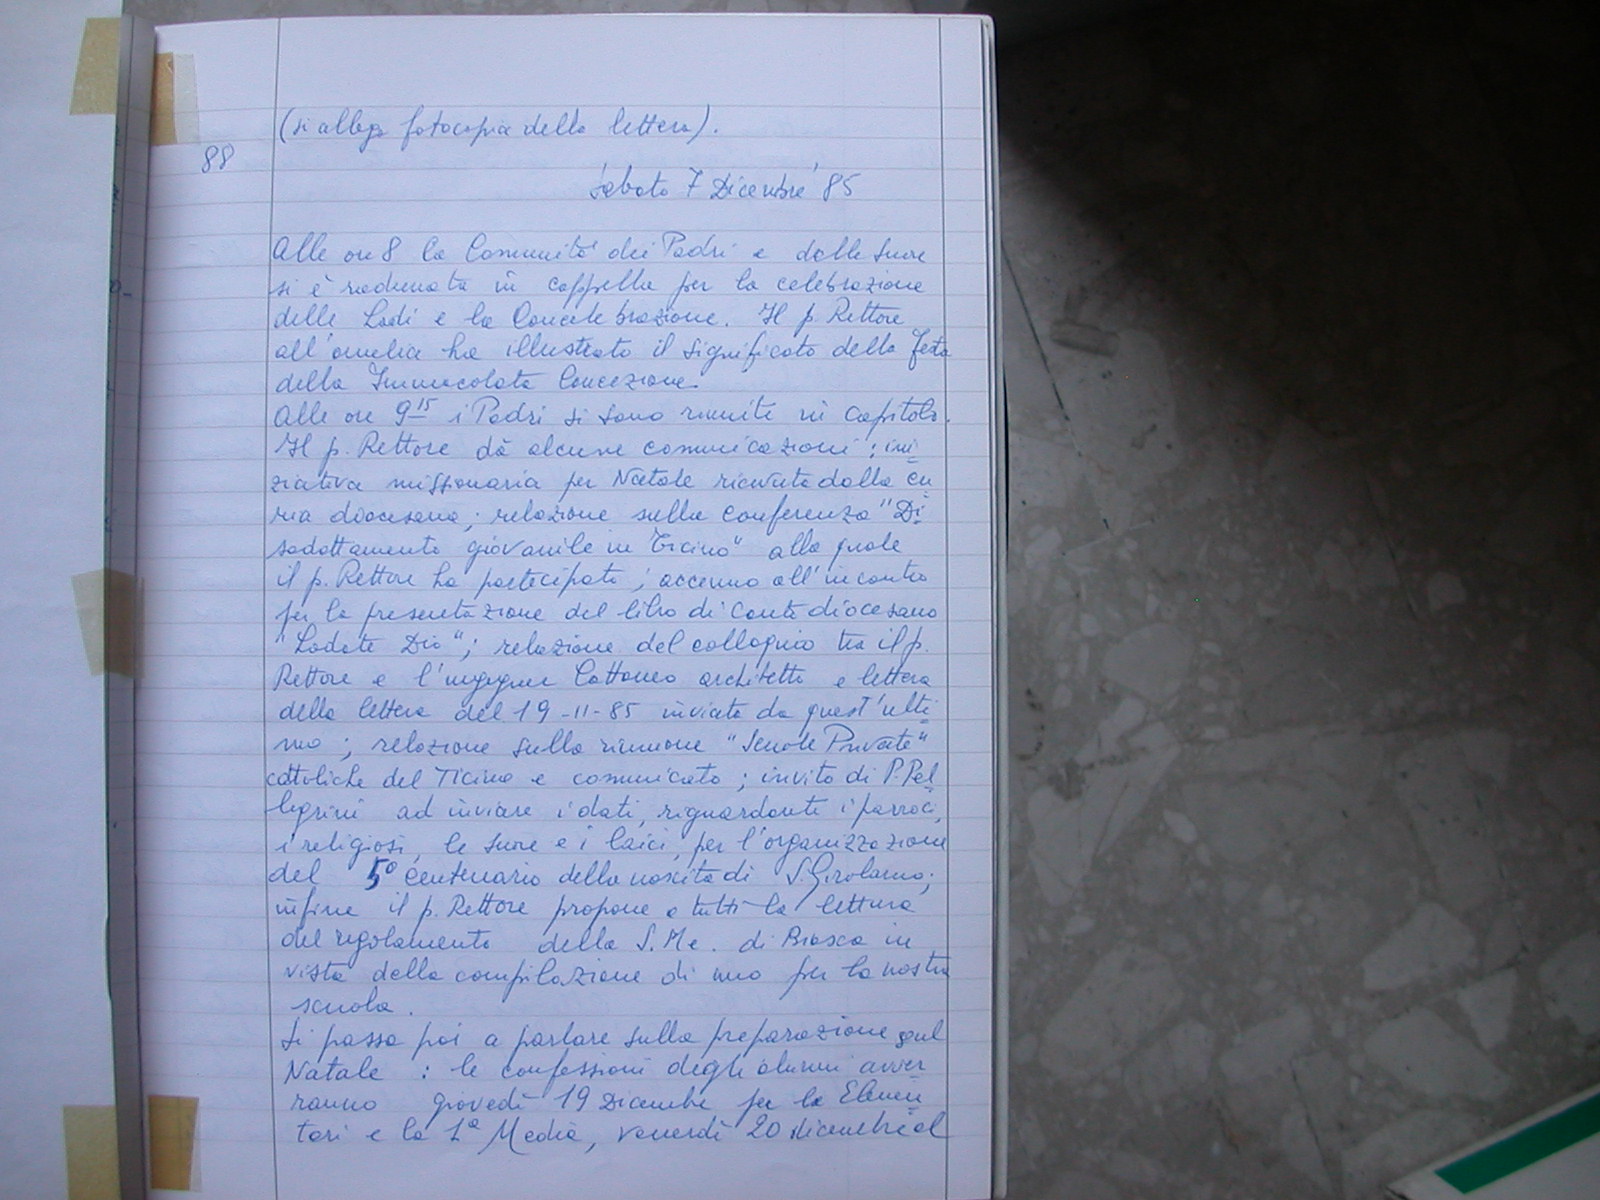 (si allega fotocopia della lettera).
88
Sabato 7 Dicembre '85
Alle ore 8 la Comunità dei Padri e delle Suore
si è radunata in cappella per la celebrazione
delle Lodi e la Concelebrazione. Il p. Rettore
all'omelia ha illustrato il significato della festa
della Immacolata Concezione.
Alle ore 9 15 i Padri si sono riuniti in capitolo.
Il p. Rettore dà alcune comunicazioni: ini
ziativa missionaria per Natale ricevuta dalla cu
ria diocesana; relazione sulla conferenza "Di
sadattamento giovanile in Ticino" alla quale
il p. Rettore ha partecipato; accenno all'incontro
per la presentazione del libro di canti diocesano
"Lodate Dio"; relazione del colloquio tra il p.
Rettore e l'ingegner Cattaneo architetto e lettera
della lettera del 19-11-85 inviata da quest'ulti
mo; relazione sulla riunione "Scuole Private"
cattoliche del Ticino e comunicato; invito di P. Pel
legrini ad inviare i dati, riguardante i parroci,
i religiosi, le suore e i laici, per l'organizzazione
del 5° centenario della nascita di S. Girolamo;
infine il p. Rettore propone a tutti la lettura
del regolamento della S. Me. di Biasca in
vista della compilazione di uno per la nostra
scuola.
Si passa poi a parlare sulla preparazione sul
Natale: le confessioni degli alunni avver
ranno giovedì 19 Dicembre per le Elemen
tari e la 1ª Media, venerdì 20 dicembre al